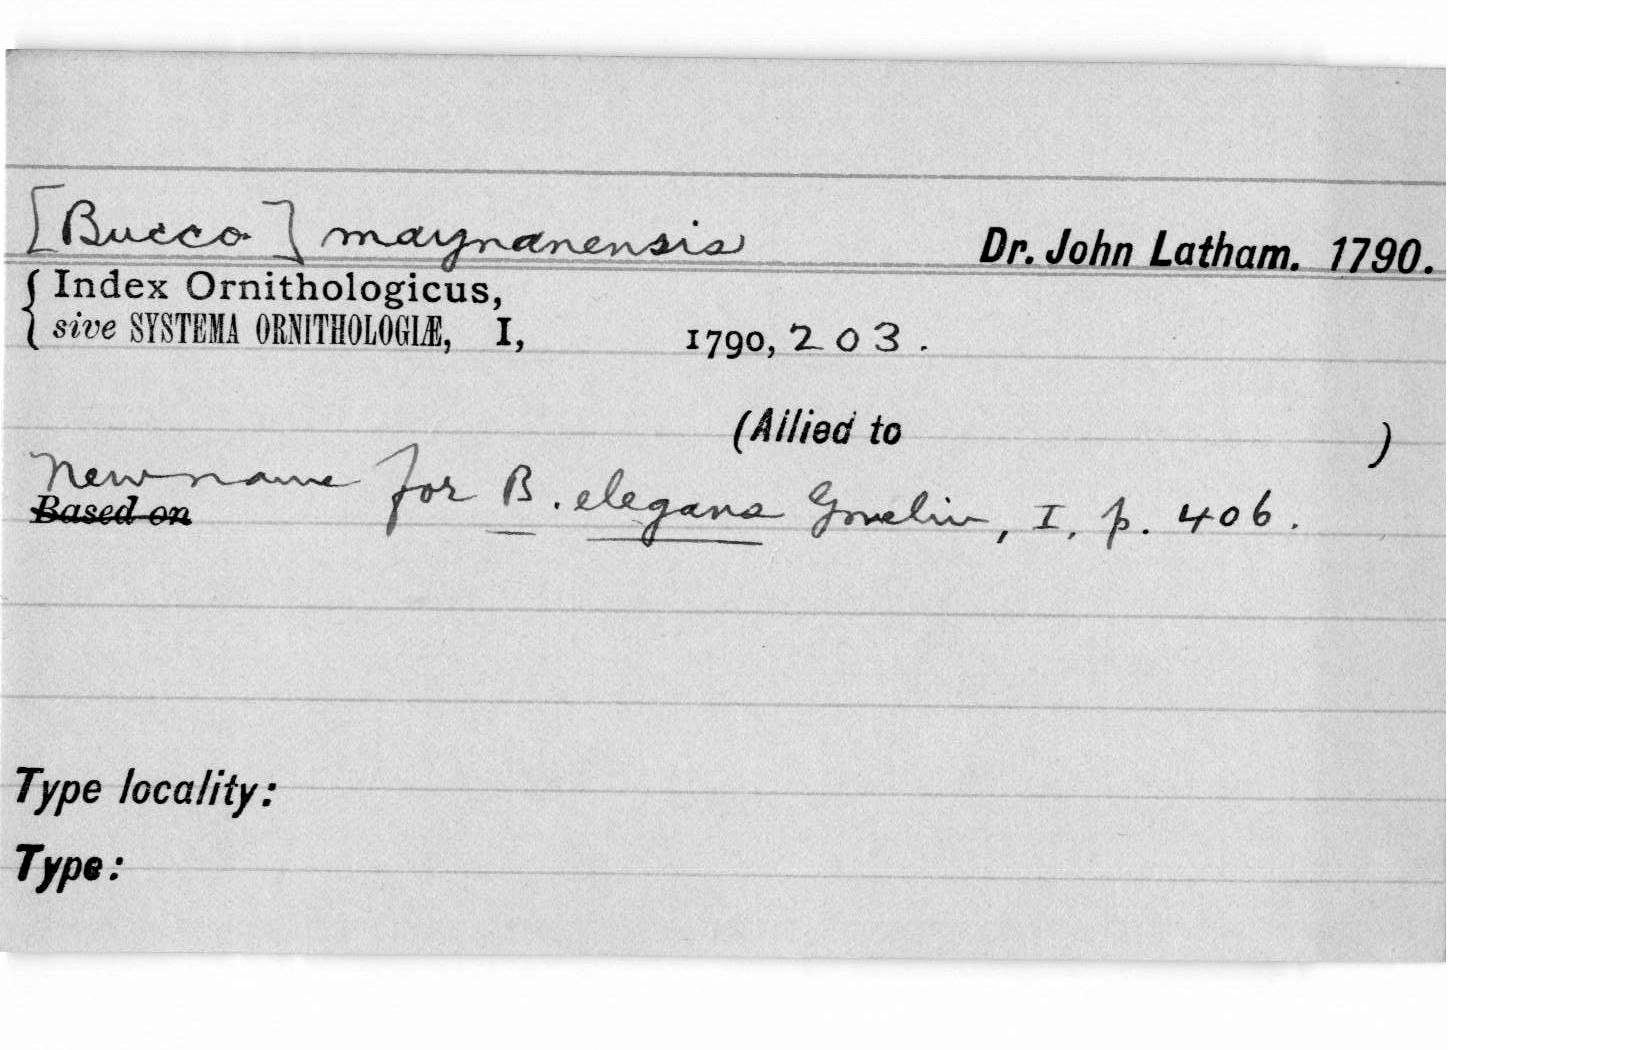 [Bucco] maynanensis Dr. John Latham. 1790.
Index Ornithologicus,
sive SYSTEMA ORNITHOLOGIÆ, I, 1790, 203.
(Allied to )
New name for B. elegans Gmelin, I, p. 406.
Based on
Type locality:
Type: